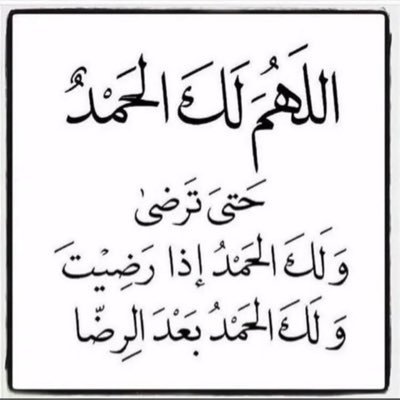 اللَهُمَ لَكَ الحَمْدُ
حَتىَ تَرَضىٰ
وَلَكَ الحَمْدُ إذا رَضِيْتَ
وَلَكَ الحَمْدُ بَعْدَ الرِضَّا